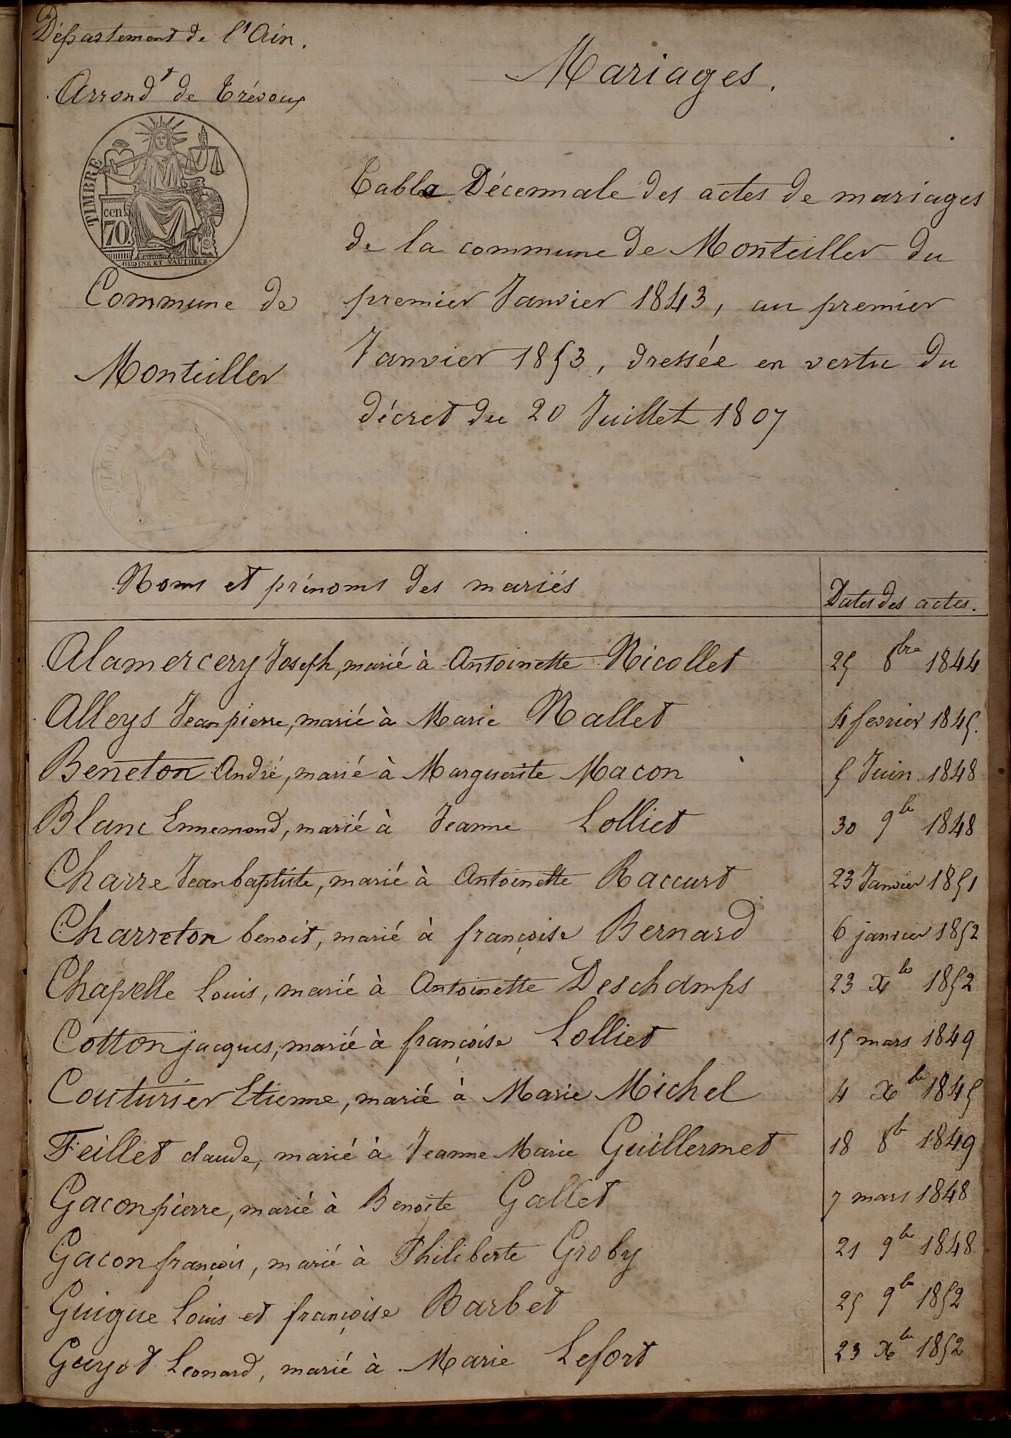 Département de l'Ain.
Arrondt de Trévoux
TIMBRE
cen.
70
Commune de
Monteiller
Mariages.
Table Décennale des actes de mariages
de la commune de Monteiller du
premier Janvier 1843, au premier
Janvier 1853, dressée en vertu du
décret du 20 Juillet 1807
Noms et prénoms des mariés
Dates des actes.
Alamercery Joseph, marié à Antoinette Nicollet 25 8bre 1844
Alleys Jean pierre, marié à Marie Nallet 4 fevrier 1845.
Beneton André, marié à Marguerite Macon 5 Juin 1848
Blanc Ennemond, marié à Jeanne Lolliet 30 9be 1848
Charre Jean baptiste, marié à Antoinette Raccurt 23 Janvier 1851
Charreton benoit, marié à françoise Bernard 6 janvier 1852
Chapelle Louis, marié à Antoinette Deschamps 23 Xbe 1852
Cotton jacques, marié à françoise Lolliet 15 mars 1849
Couturier Etienne, marié à Marie Michel 4 Xbe 1845
Feillet claude, marié à Jeanne Marie Guillermet 18 8b 1849
Gacon pierre, marié à Benoîte Gallet 7 mars 1848
Gacon françois, marié à Philiberte Groby 21 9be 1848
Guigue Louis et françoise Barbet 25 9be 1852
Guyot Leonard, marié à Marie Lefort 23 Xbe 1852